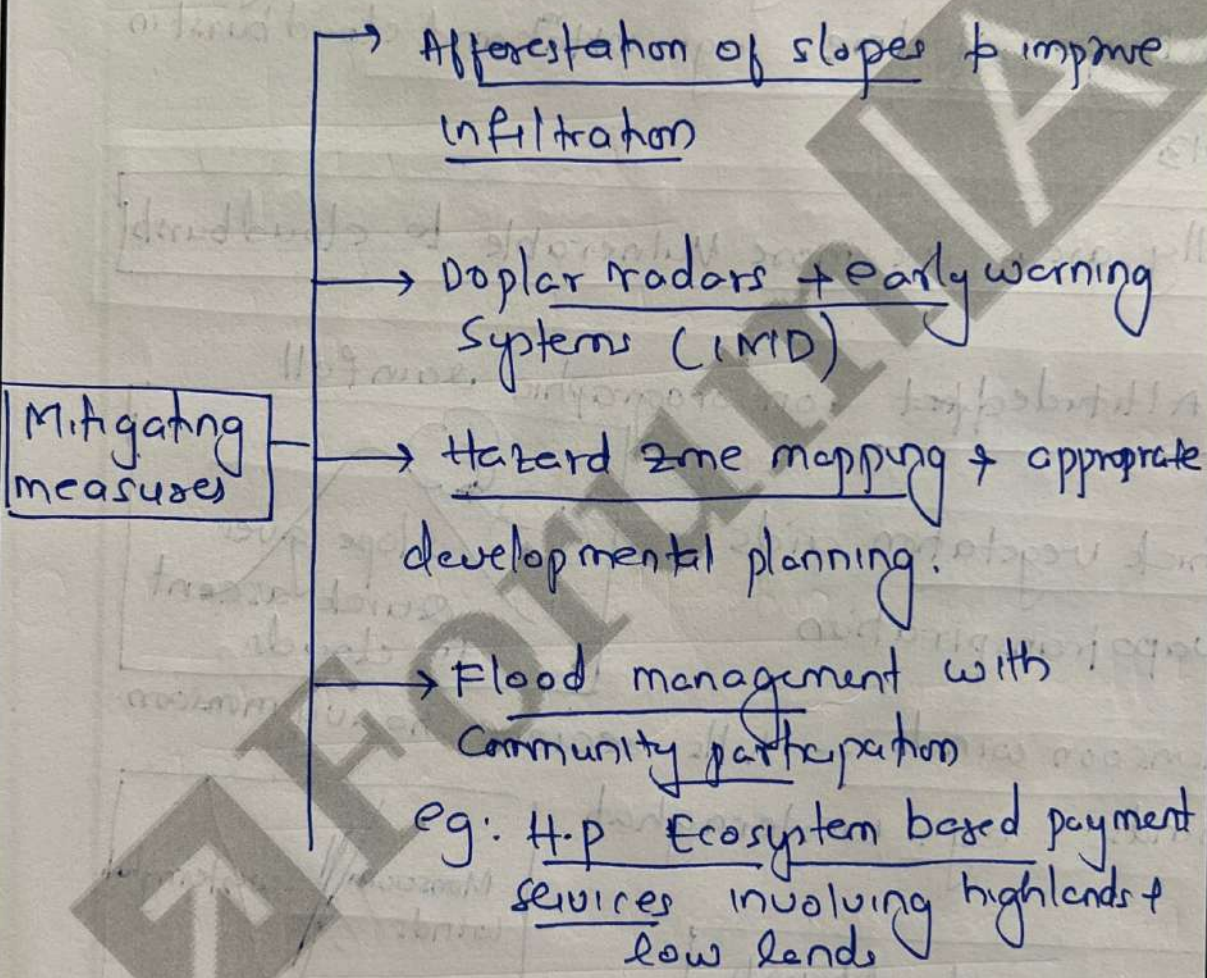 → Afforestation of slopes & improve
infiltration
→ Doplar radars + early warning
Systems (IMD)
Mitigating
measures
→ Hazard zone mapping & appropriate
developmental planning.
→ Flood management with
Community participation
eg: H.P Ecosystem based payment
services involving highlands &
low lands
ForumIA